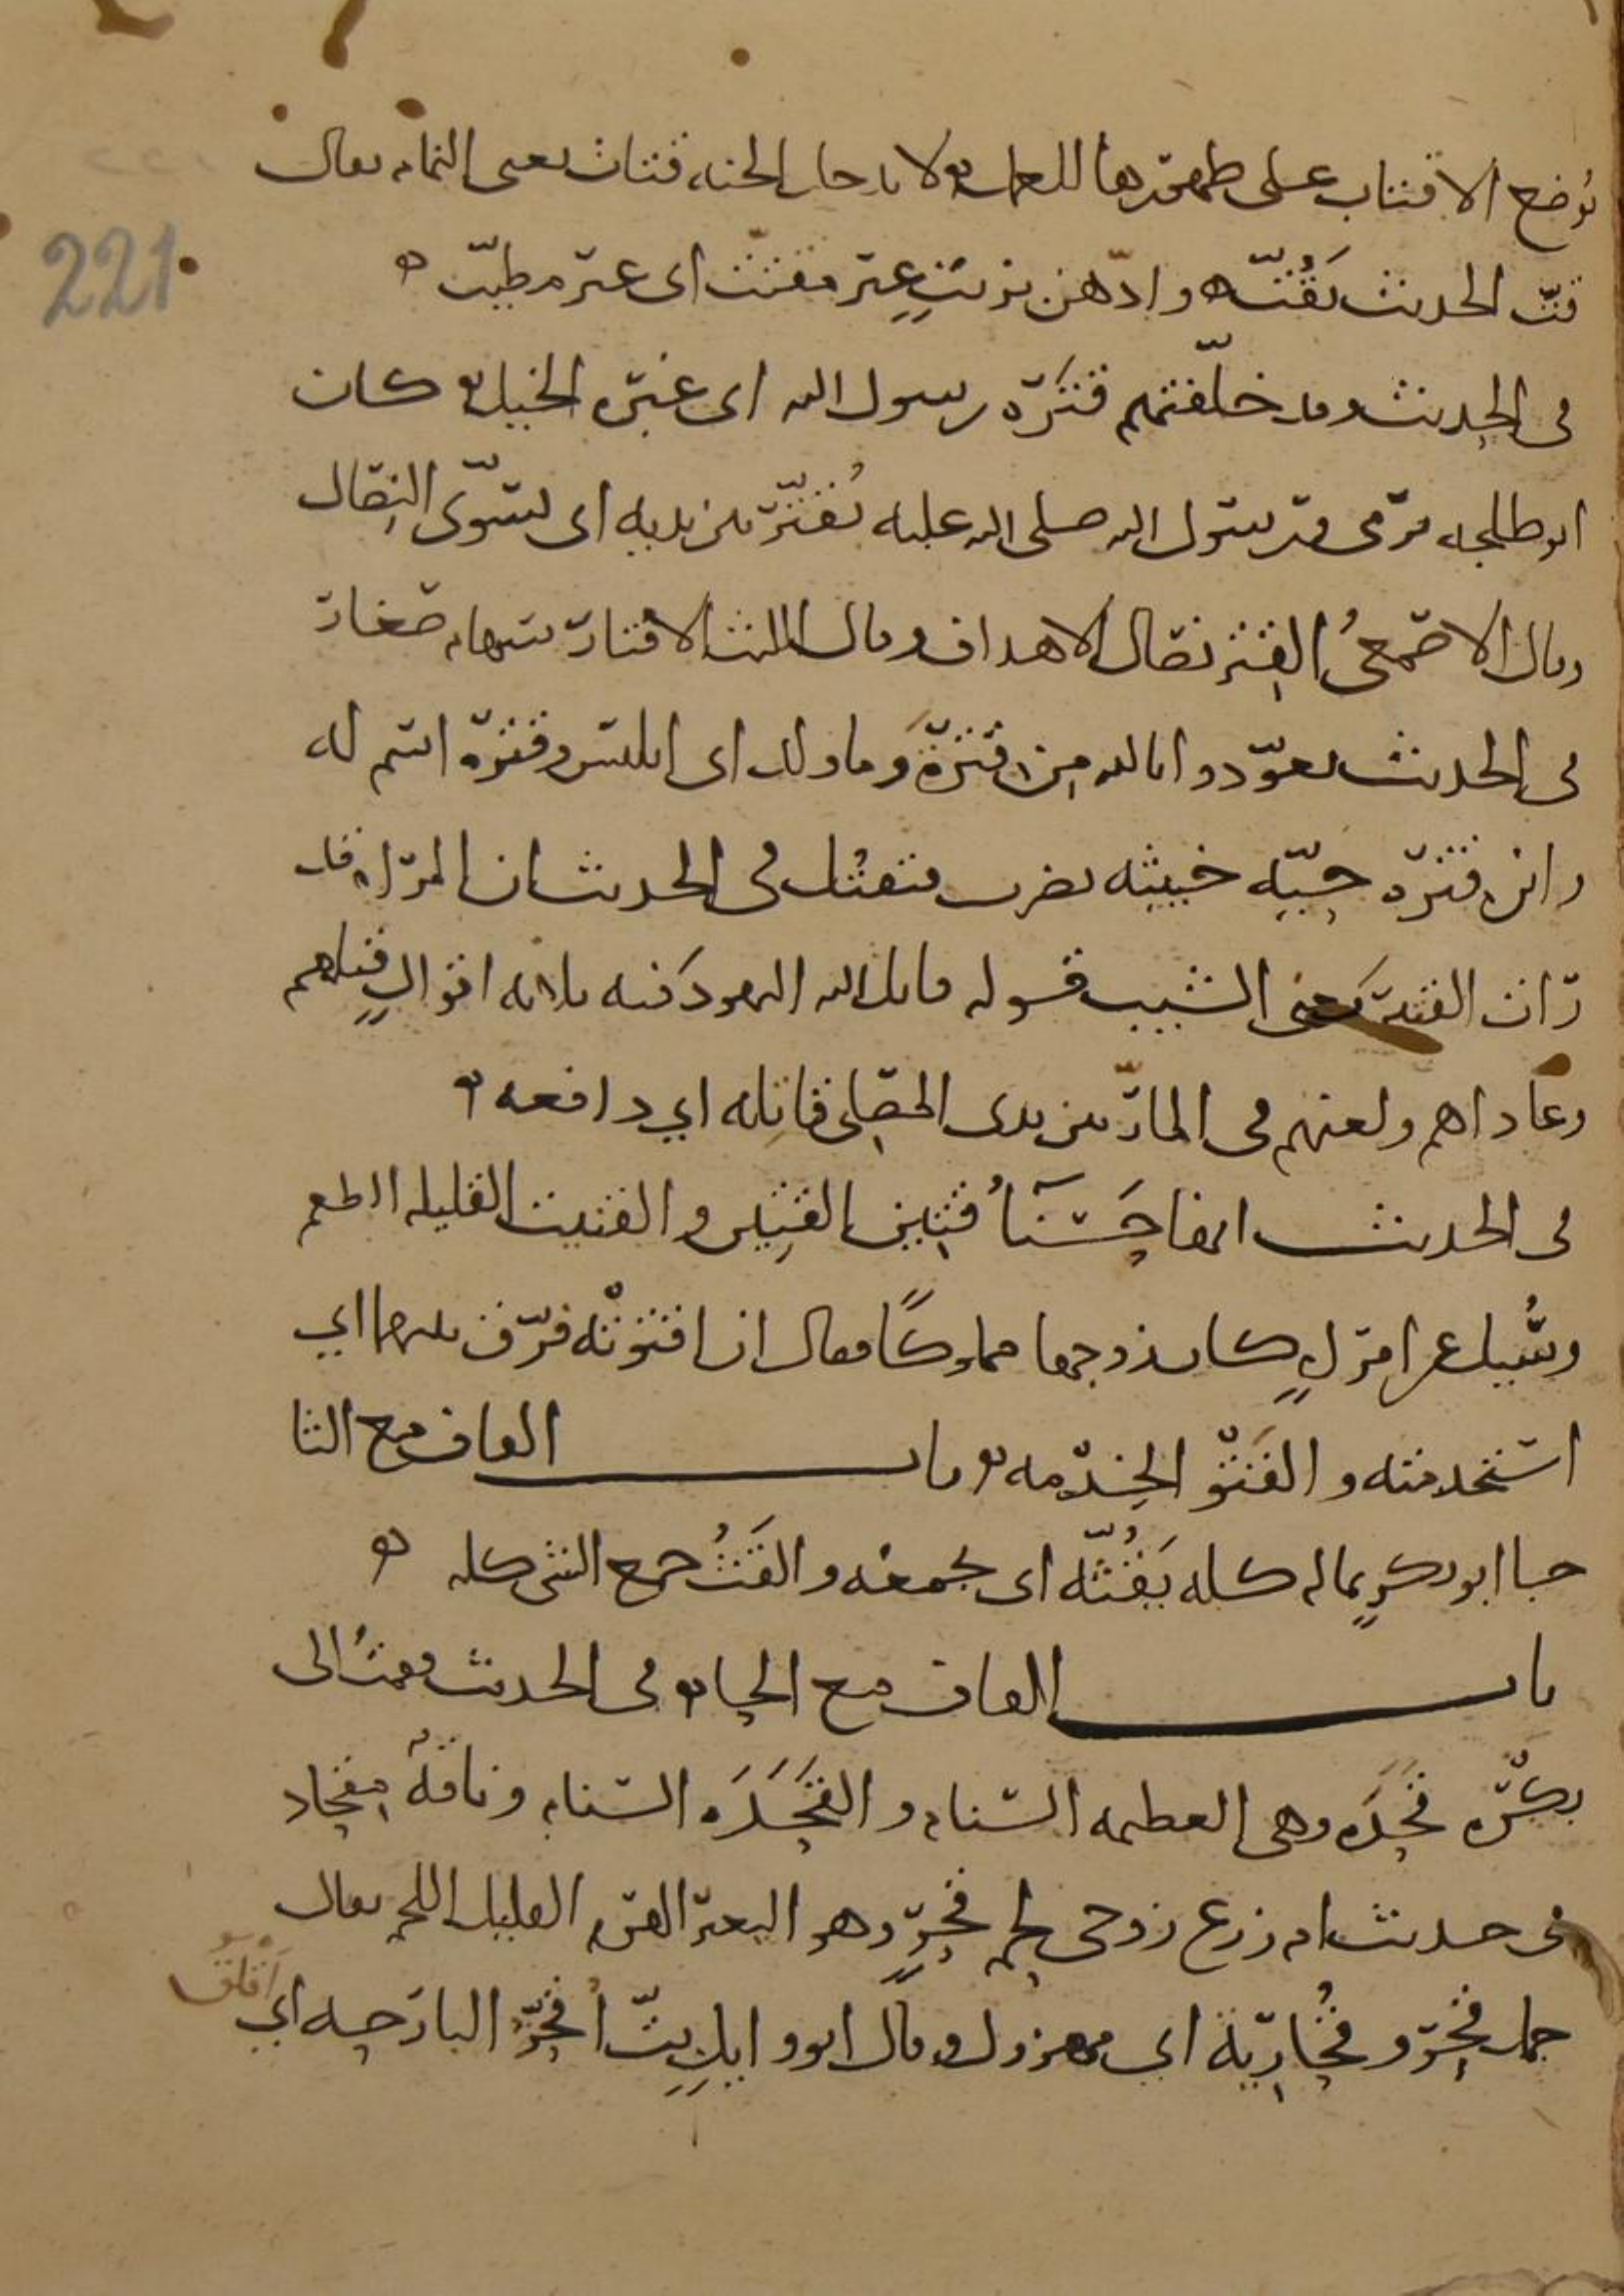 221
توضع الاقتاب على ظهورها للعمل ۞ لا يدخل الجنه قتات يعنى النمام يقال
قتّ الحديث يَقُتّه وادّهن بزيتٍ غير مقتّت اى غير مطيّب ۞
فى الحديث وقد خلّفتهم قترَة رسول الله اى غبرة الخيل ۞ كان
ابو طلحه يرمى ورسول الله صلى الله عليه يُقتّر بين يديه اى يسوّى النِصال
وقال الاصمعىُ القِتر نصال الاهداف وقال الليث الاقتار سهام صغار
فى الحديث تعوّذوا بالله مِن قترَةَ وما ولد اى ابليس وقترة اسم له
وابن قترة حيّه خبيثه يضرب فتقتل فى الحديث ان المراه قد
رات القتير يعنى الشيب قوله قاتل الله اليهود فيه ثلاثه اقوالٍ قتلهم
وعاداهم ولعنهم فى المارّ بين يدى المصلى قاتله اي دافعه ۞
فى الحديث انها حَسْنآُ قتِين القتِين والقنيت القليله الطعم
وسُيل عن امراٍ كان زوجها مملوكًا فقال ان اقتوته فرّق بينهما اي
استخدمته والقَتْو الخِدمه ۞ باب القاف مع الثا
جا ابو بكرٍ بماله كله يَقُثّه اى يجمعه والقَثُ جمع الشى كله ۞
باب القاف مع الحا ۞ فى الحديث فقمتُ الى
بكرَه قحدَه وهى العظيمه السنام والقَحَدَه السنام وناقةٌ مِقحاد
فى حديث ام زرع زوجى لحم جمل قحرٍ وهو البعير الهرم القليل اللحم يقال
جمل قَحِر وقُحارِيَة اى مهزول وقال ابو
اقلق